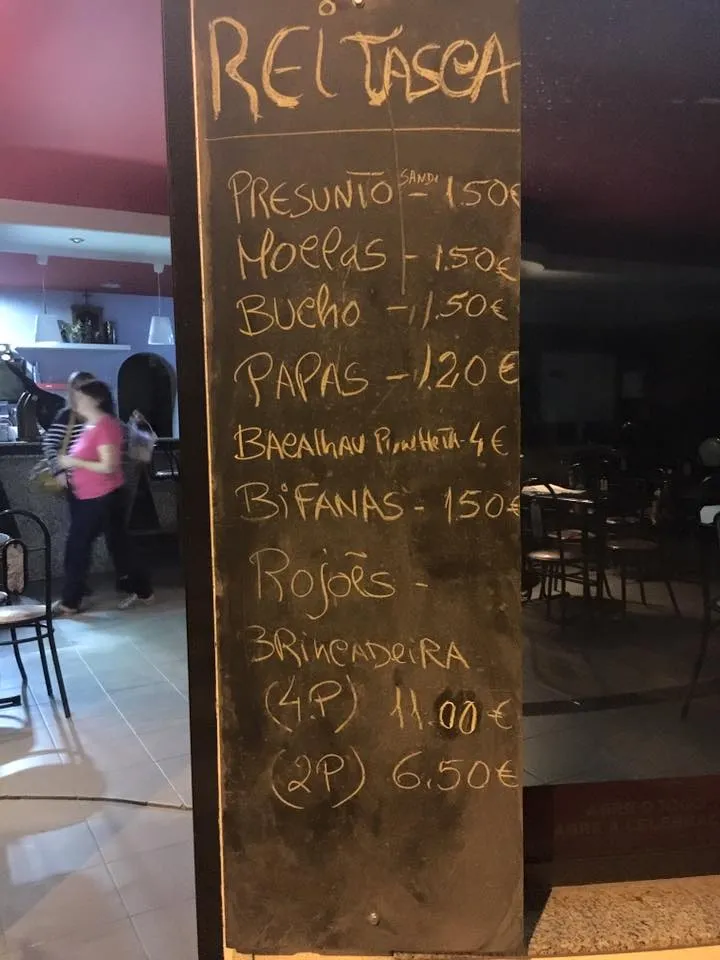 REi TASCA
PRESUNTO SANDI - 1.50€
Moelas - 1.50€
BUCHO - 1.50€
PAPAS - 1.20€
BACAlhAU 4€
BiFANAS - 1.50€
Rojões -
BRINCADEIRA
(4.P) 11.00€
(2P) 6.50€